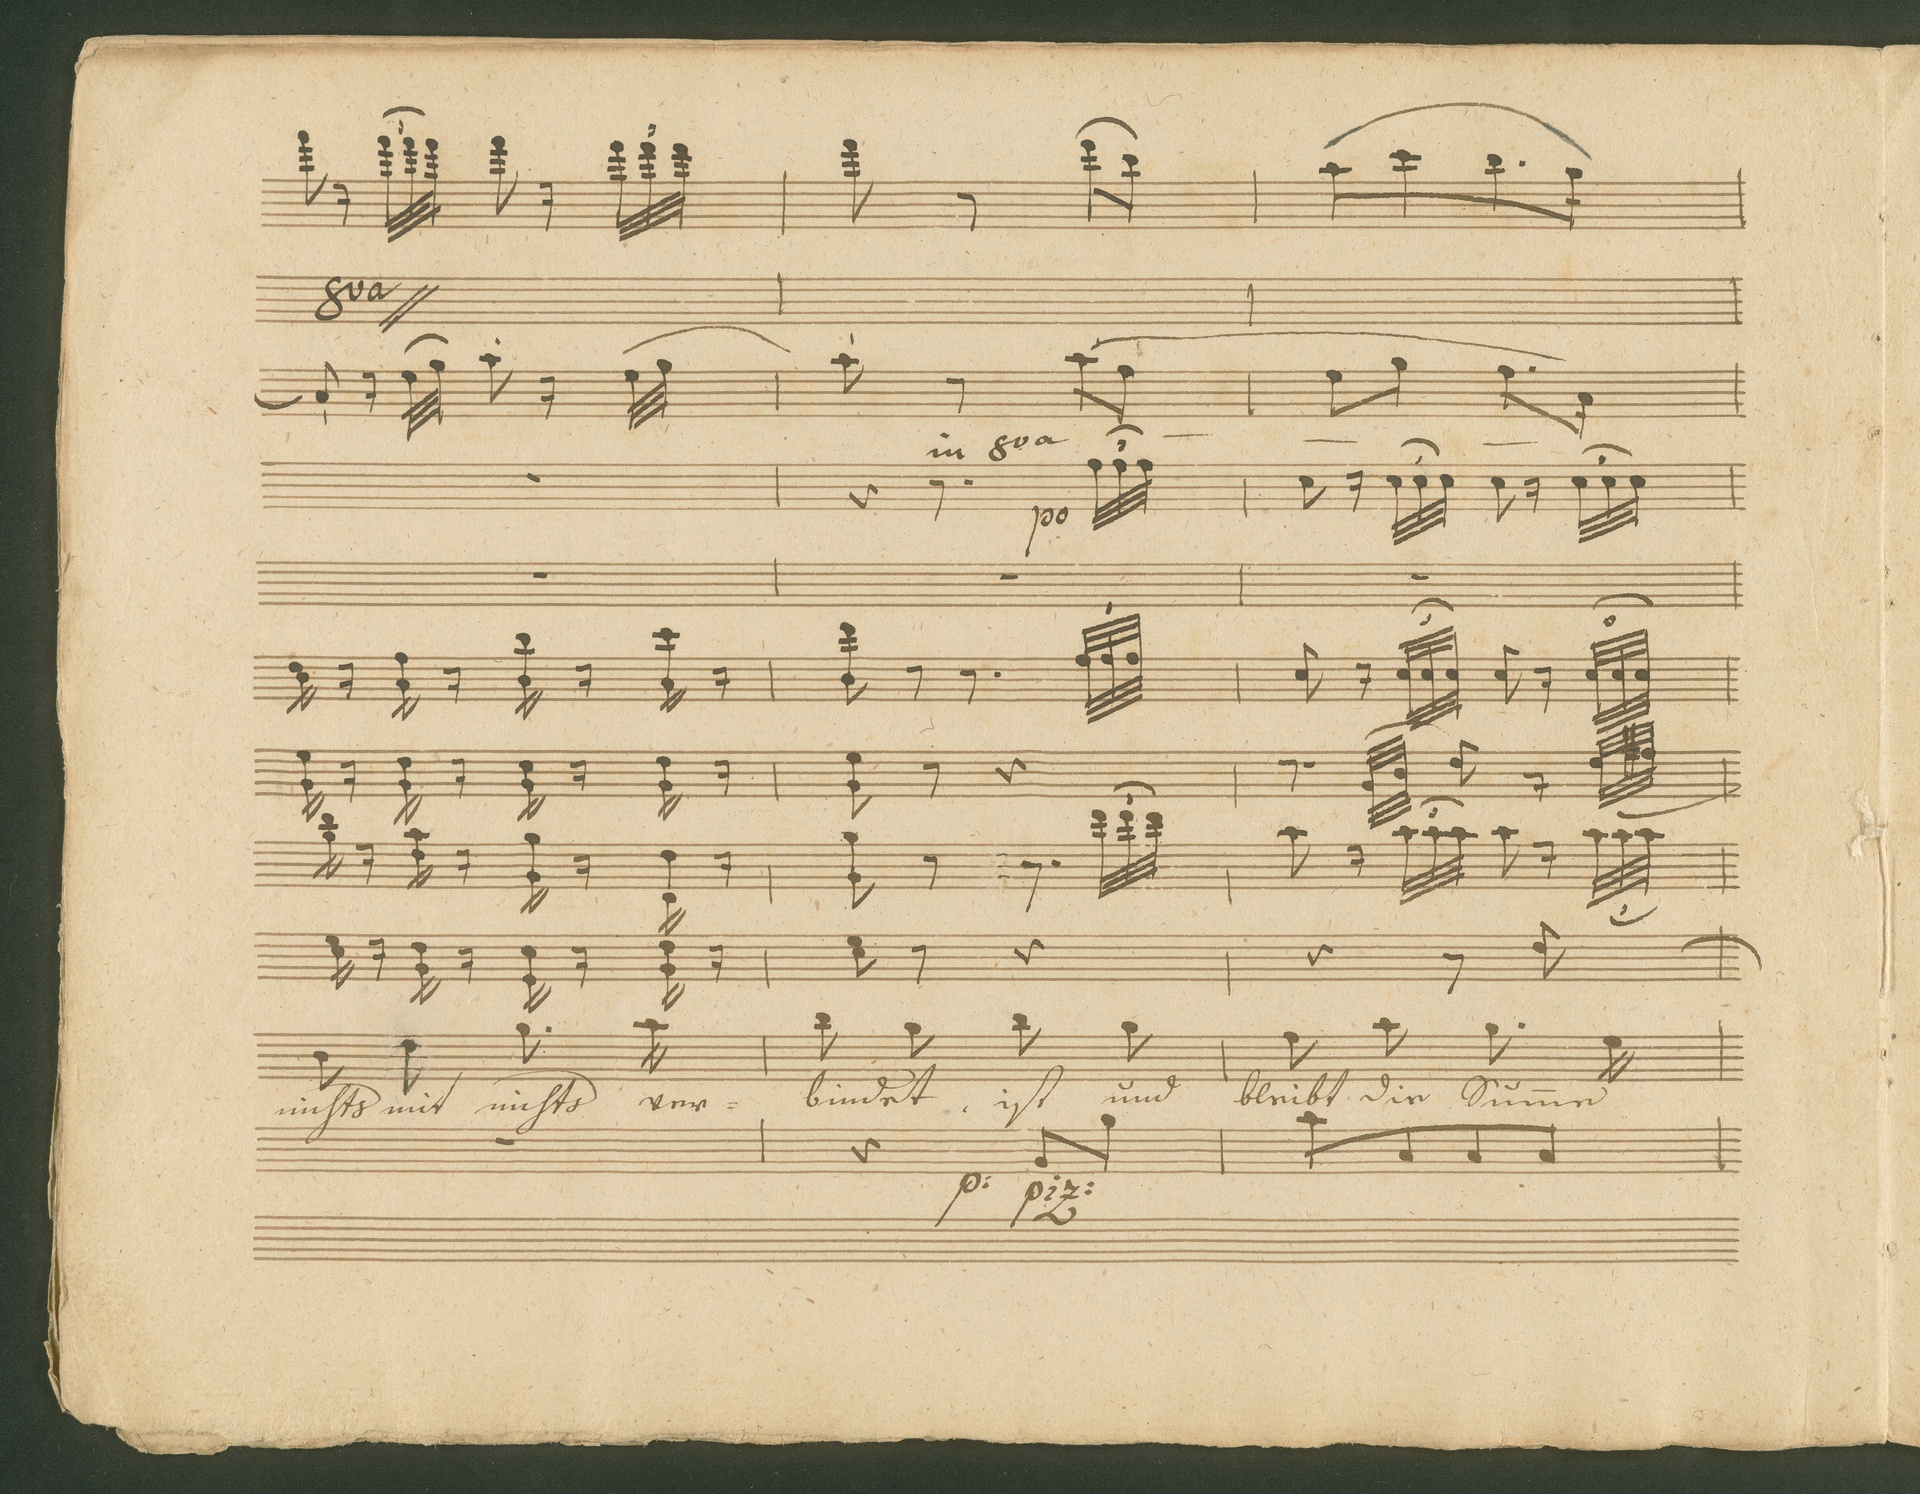 8va
in 8va
po
nichts mit nichts ver= bindet, ist und bleibt die Sum̄e
p: piz: